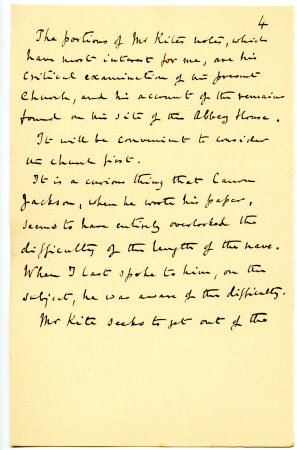 4
The portions of Mr Kites notes, which
have most interest for me, are his
critical examination of the present
Church, and his account of the remains
found on the site of the Abbey House.
It will be convenient to consider
the church first.
It is a curious thing that Canon
Jackson, when he wrote his paper,
seems to have entirely overlooked the
difficulty of the length of the nave.
When I last spoke to him, on the
subject, he was aware of the difficulty.
Mr Kite seeks to get out of the